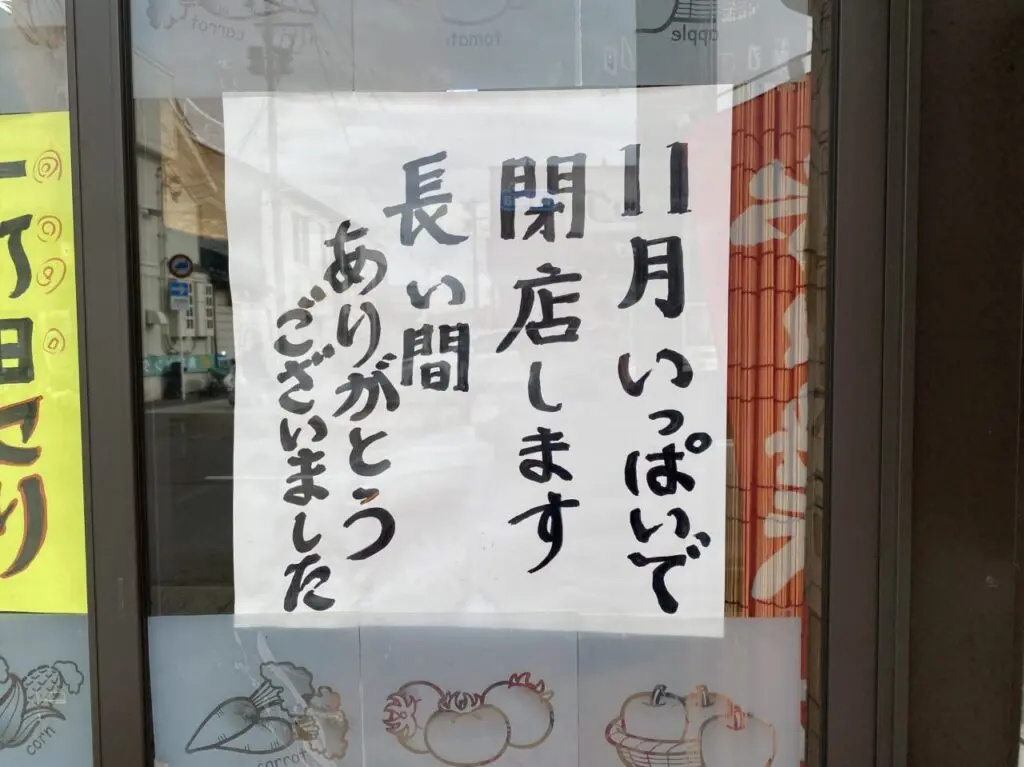 11月いっぱいで
閉店します
長い間
ありがとう
ございました
carrot
tomat
apple
corn
carrot